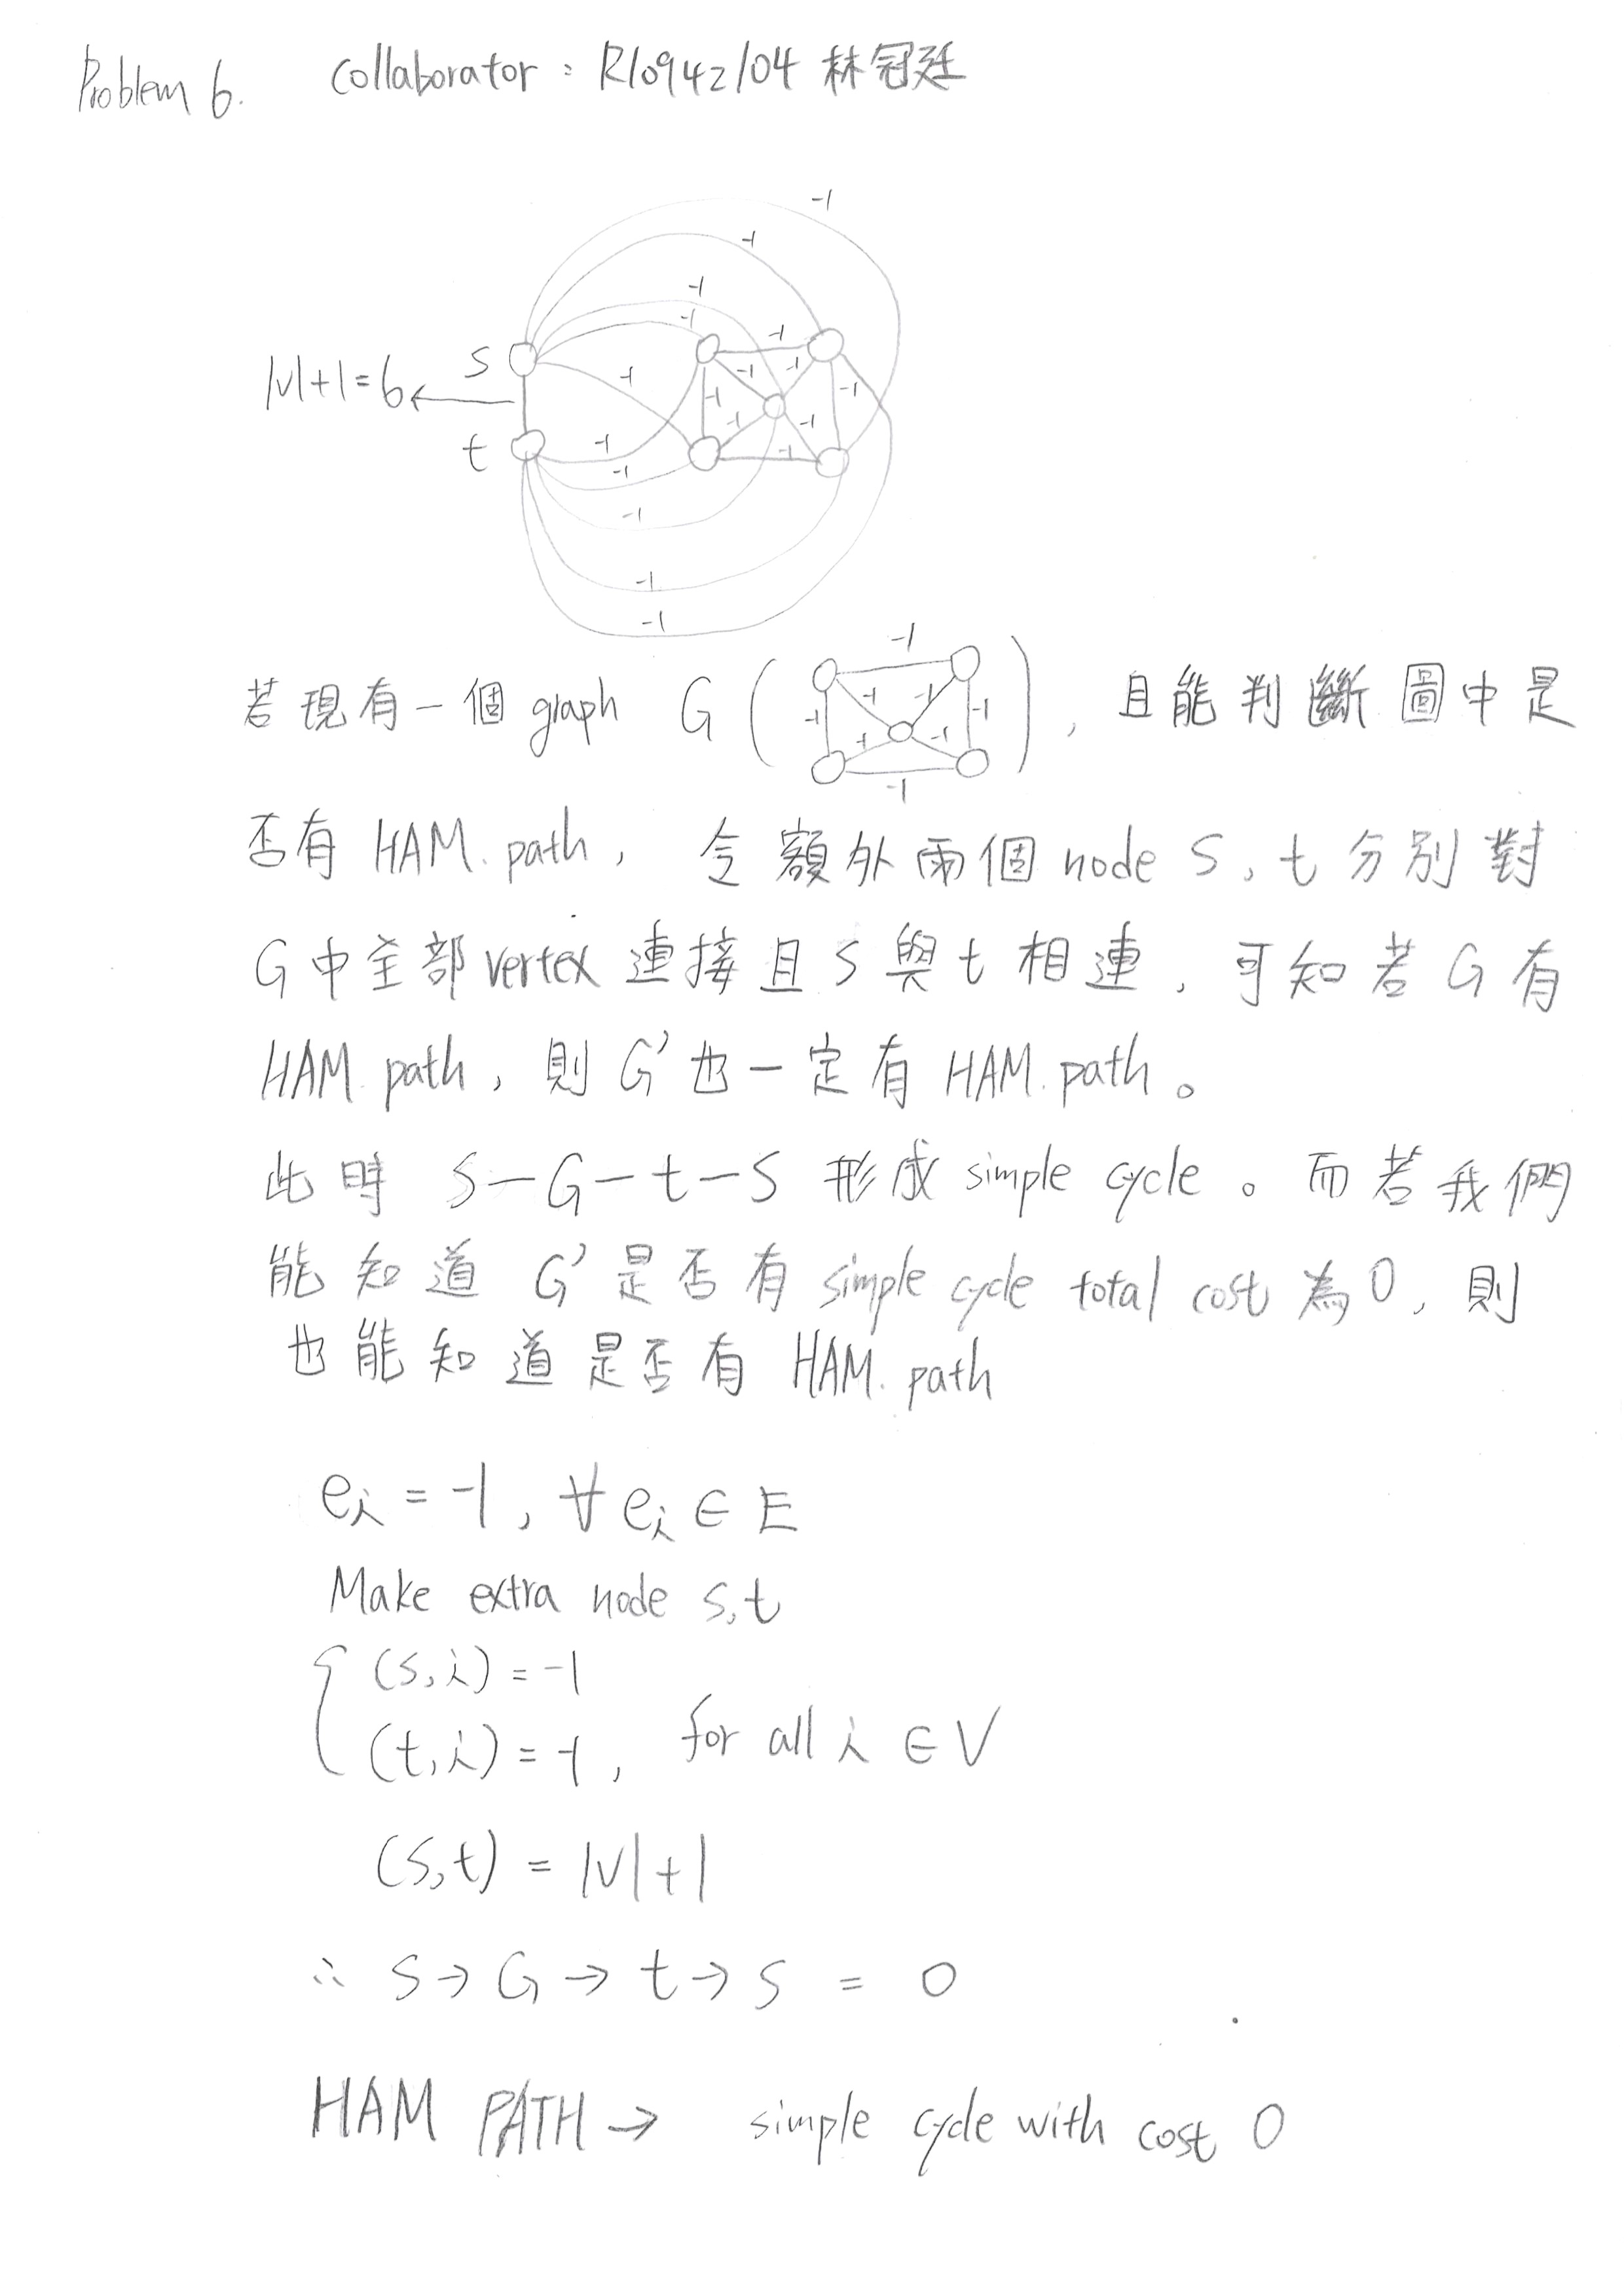 Problem 6. collaborator : R10942104 林冠廷
-1
-1
-1
-1
-1 -1
|V|+1=6 ← s -1 -1 -1 -1
-1 -1 -1
t -1 -1
-1
-1
-1
-1
-1
若現有一個 graph G ( -1 -1 -1 -1 -1 -1 -1 ) , 且能判斷圖中是
否有 HAM. path , 令額外兩個 node s, t 分別對
G 中全部 vertex 連接且 s 與 t 相連 , 可知若 G 有
HAM path , 則 G' 也一定有 HAM. path 。
此時 s－G－t－s 形成 simple cycle 。 而若我們
能知道 G' 是否有 simple cycle total cost 為 0 , 則
也能知道是否有 HAM. path
eᵢ = -1 , ∀ eᵢ ∈ E
Make extra node s, t
{ (s, i) = -1
(t, i) = -1 , for all i ∈ V
(s, t) = |V| + 1
∴ s → G → t → s = 0
HAM PATH → simple cycle with cost 0